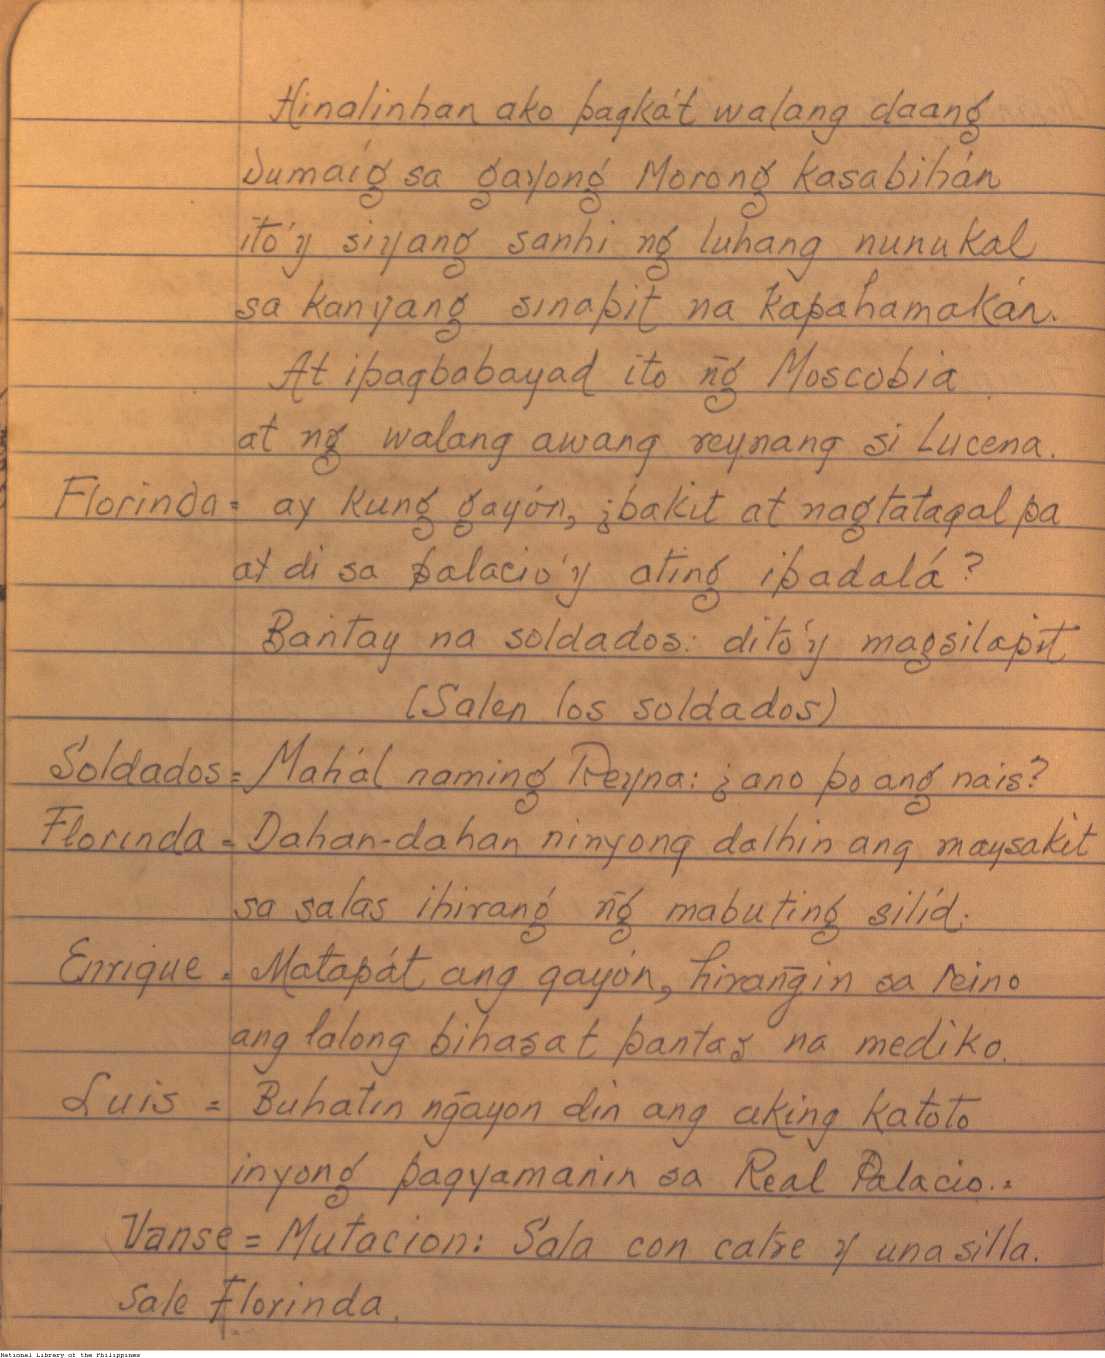 Hinalinhan ako pagka't walang daang
dumaíg sa gayong Morong kasabihán
ito'y siyang sanhi ng luhang nunukal
sa kanyang sinapit na kapahamakán.
At ipagbabayad ito n̄g Moscobia
at ng walang awang reynang si Lucena.
Florinda = ay kung gayón, ¿bakit at nagtatagal pa
at di sa palacio'y ating ipadalá?
Bantay na soldados: dito'y magsilapit
(Salen los soldados)
Soldados = Mahál naming Reyna: ¿ano po ang nais?
Florinda = Dahan-dahan ninyong dalhin ang maysakit
sa salas ihirang n̄g mabuting silid.
Enrique = Matapát ang gayón, hiran̄gin sa reino
ang lalong bihasa t pantas na mediko.
Luis = Buhatin n̄gayon din ang aking katoto
inyong pagyamanin sa Real Palacio..
Vanse = Mutacion: Sala con catre y una silla.
Sale Florinda.
National Library of the Philippines